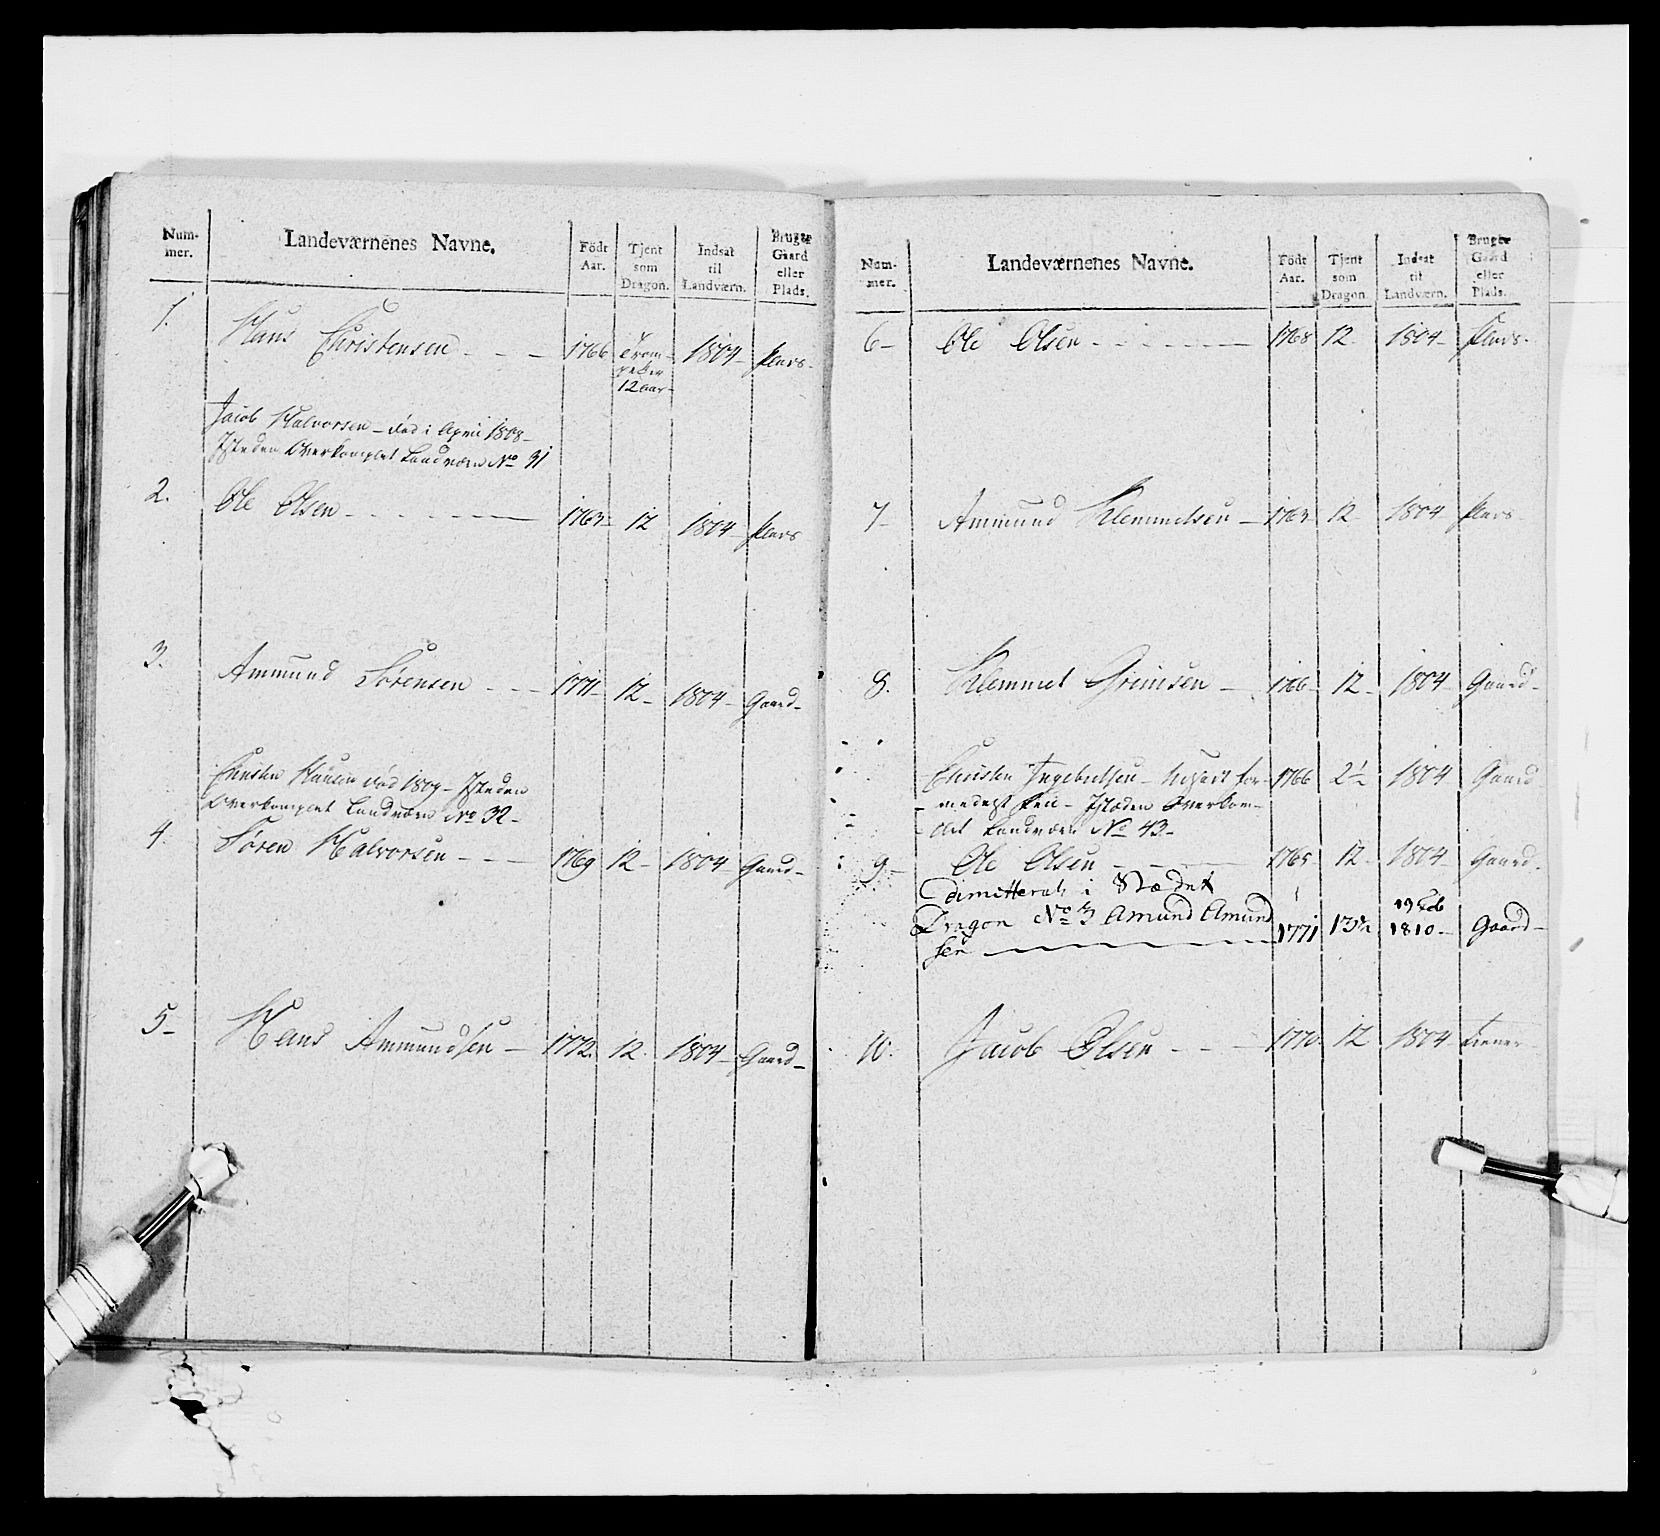 Num-
mer.
Landeværnenes Navne.
Födt
Aar.
Tjent
som
Dragon.
Indsat
til
Landværn.
Bruger
Gaard
eller
Plads.
1.
Hans Christensen - - - 1766 Trom- 1804 - Plads -
peter
12 aar -
Jacob Halvorsen - død i April 1808 -
Isteden Overkomplet Landværn No 31
2.
Ole Olsen - - - - - 12 1804 - Plads
3.
Ammund Sörensen - - - 1771 - 12 - 1804 - Gaard -
Christen Hansen død 1809 - Isteden
Overkomplet Landværn No 32 -
4.
Sören Halvorsen - - - 1769 12 - 1804 - Gaard -
5 -
Hans Ammundsen - 1772. 12. 1804 - Gaard -
Num-
mer.
Landeværnenes Navne.
Födt
Aar.
Tjent
som
Dragon.
Indsat
til
Landværn.
Bruger
Gaard
eller
Plads.
6 -
Ole Olsen - - - - - 1768 12. 1804 - Plads -
7 -
Ammund Klemmetsen - 12 - 1804 Plads -
8.
Klemmet Grimsen - 1766 - 12 - 1804 - Gaard -
Christen Ingebretsen - for- 1766 2½ 1804 Gaard -
Isteden Overkom-
plet Landværn No 43 -
9 -
Ole Olsen - - - 1765 12 - 1804 - Gaard -
dimitteret i Stædet
Dragon No 3 Amund Amund
sen - - - - 1771 13½ 19 Feb
1810 - Gaard -
10.
Jacob Olsen - - - 1770 12 1804 - Tiener